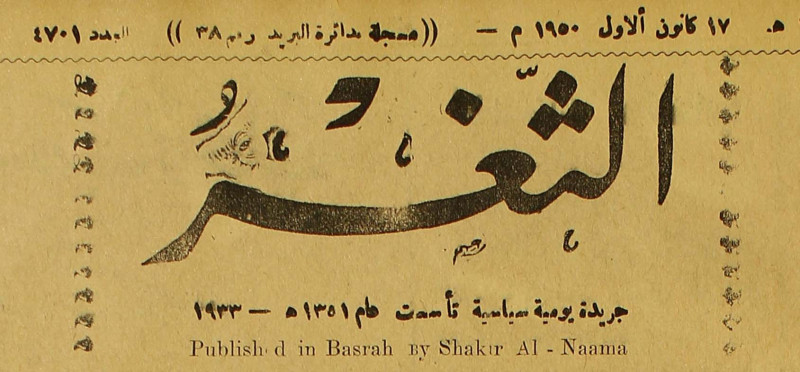 هـ ١٧ كانون الاول ١٩٥٠ م — ((مسجلة بدائرة البريد رقم ٣٨ )) العدد ٤٧٠١
الثَّغْرُ
جريدة يومية سياسية تأسست عام ١٣٥١ هـ — ١٩٣٣
Published in Basrah By Shakir Al - Naama